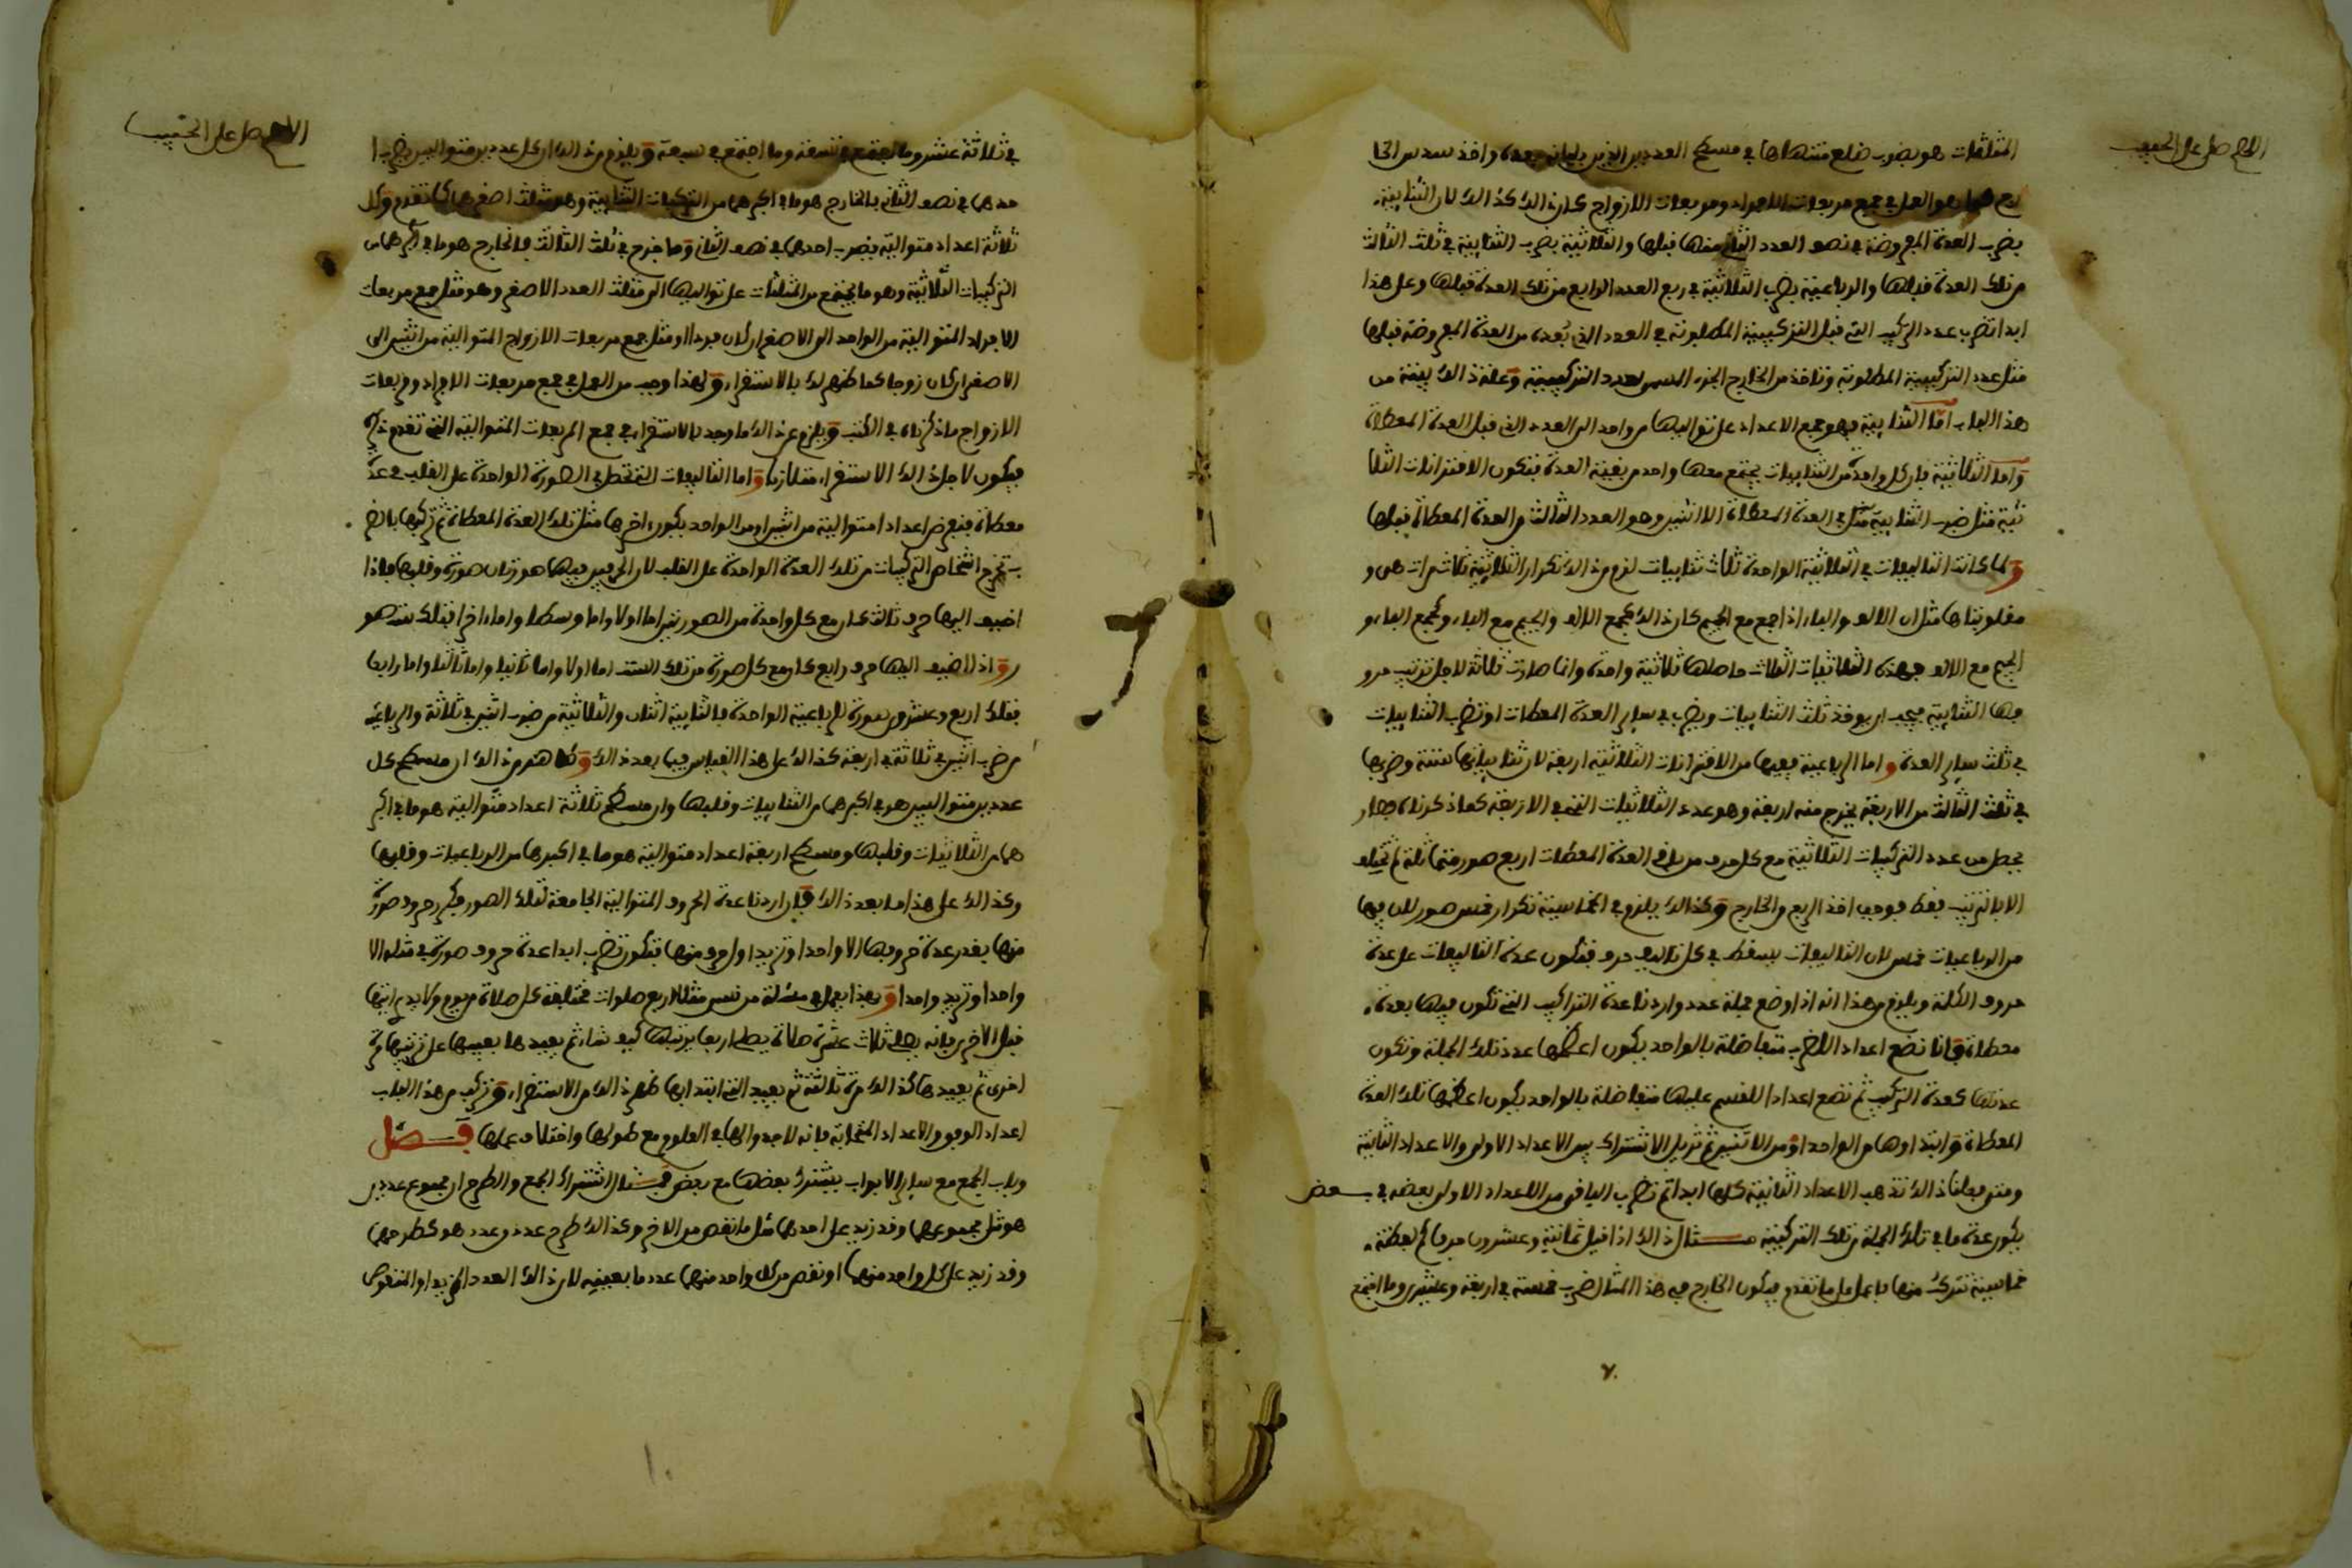 اللهم صل على الحبيب
المثلثات هو بضرب ضلع منتهاها في مسطح العددين الذين يليانه بعده واخذ سدس الخا
رج فهو العمل في جمع مربعات الافراد ومربعات الازواج كان ذلك كذالك لان الثنايية
بضرب العدة المعروضة في نصف العدد الذي منها قبلها والثلاثية بضرب الثنايية في ثلث الثالث
من تلك العدة قبلها والرباعية بضرب الثلاثية في ربع العدد الرابع من تلك العدة قبلها وعلى هذا
ابدا تضرب عدد التركيب التي قبل التركيبية المطلوبة في العدد الذي بُعده من العدة المعروضة قبلها
مثل عدد التركيبية المطلوبة وتاخذ من الخارج الجزء السمي لعدد التركيبية وعلة ذالك بينة من
هذا الباب امّا الثنايية فهو جمع الاعداد على تواليها من واحد الى العدد الذي قبل العدة المعطاة
واما الثلاثية فان كل واحدة من الثناييات يجتمع معها واحد من بقية العدة فتكون الاقترانات الثلا
ثية مثل ضرب الثنايية في العدة المعطاة الا اثنين وهو العدد الثالث من العدة المعطاة قبلها
ولما كانت التاليفات في الثلاثية الواحدة ثلاث ثناييات لزم من ذالك تكرار الثلاثية ثلاث مرات هي و
مقلوبتاها مثل ان الالف والباء اذا جمع مع الجيم كان ذالك كجمع الالف والجيم مع الباء وكجمع الباء و
الجيم مع الالف فهذه الثلاثيات الثلاث حاصلها ثلاثية واحدة وانما صارت ثلاثة لاجل ترتيب حرو
فها الثنايية فيجب ان يوخذ ثلث الثناييات ويضرب في ساير العدة المعطات او تضرب الثناييات
في ثلث ساير العدة واما الرباعية ففيها من الاقترانات الثلاثية اربعة لان ثنايياتها ستة وضربها
في ثلث الثالث من الاربعة يخرج منه اربعة وهو عدد الثلاثيات التي في الاربعة كما ذكرناه فصار
يحصل من عدد التركيبات الثلاثية مع كل حرف من باقي العدة المعطات اربع صور متماثلة لم تختلف
الا بالترتيب فقط فوجب اخذ الربع والخارج وكذالك يلزم في الخماسية تكرار خمس صور لان فيها
من الرباعيات خمس لان التاليفات يسقط في كل تاليف حرف فتكون عدة التاليفات على عدة
حروف الكلمة ويلزم من هذا انه اذا وضع جملة عدد واردنا عدة التراكيب التي تكون فيها بعدة
معطاة فانا نضع اعداد الضرب متفاضلة بالواحد يكون اعظمها عدد تلك الجملة وتكون
عدتها كعدة التركيب ثم نضع اعدادا للقسم عليها متفاضلة بالواحد يكون اعظمها تلك العدة
المعطاة وابتداوها من الواحد او من الاثنين ثم نزيل الاشتراك بين الاعداد الاولى والاعداد الثانية
ومتى فعلنا ذالك تذهب الاعداد الثانية كلها ابدا ثم تضرب الباقي من الاعداد الاولى بعضه في بعض
يكون عدة ما في تلك الجملة من تلك التركيبية مثال ذالك اذا قيل ثمانية وعشرون حرفا كم لفظة
خماسية تتركب منها فاعمل ما تقدم فيكون الخارج في هذا المثال ضرب خمسة في اربعة وعشرين وما اجتمع
٧٠
اللهم صل على الحبيب
في ثلاثة عشر وما اجتمع في تسعة وما اجتمع في سبعة ويلزم من ذالك ان كل عددين متواليين يضرب ا
حدهما في نصف الثاني فالخارج هو ما في اكبرهما من التركيبات الثنايية وهو مثلث اصغرهما كما تقدم وكل
ثلاثة اعداد متوالية يضرب احدها في نصف الثاني وما خرج في ثلث الثالث فالخارج هو ما في اكبرها من
التركيبات الثلاثية وهو ما يجتمع من المثلثات على تواليها الى مثلث العدد الاصغر وهو مثل جمع مربعات
الافراد المتوالية من الواحد الى الاصغر ان كان فردا او مثل جمع مربعات الازواج المتوالية من اثنين الى
الاصغر ان كان زوجا كما ظهر لك بالاستقراء ولهذا وجب من العمل في جمع مربعات الافراد ومربعات
الازواج ما ذكرناه في الكتب ويلزم عن ذالك ما وجد بالاستقراء في جمع المربعات المتوالية التي تقدم ذكره
فيكون لاجل ذالك الاستقراء متلازما واما التاليفات التي تحصل في الصورة الواحدة على القلب في عدّة
معطاة فنفرض اعدادا متوالية من اثنين او من الواحد يكون اخرها مثل تلك العدة المعطاة ثم نركبها بالضر
ب تخرج اشخاص التركيبات من تلك العدة الواحدة على القلب لان الحرفين فيهما صورتان صورة وقلبها فاذا
اضيف اليها حرف ثالث كان مع كل واحدة من الصورتين اما اولا واما وسطا واما اخرا فتلك ست صو
ر واذا اضيف اليها حرف رابع كان مع كل صورة من تلك الست اما اولا واما ثانيا واما ثالثا واما رابعا
فتلك اربع وعشرون صورة للرباعية الواحدة فالثنايية اثنان والثلاثية من ضرب اثنين في ثلاثة والرباعية
من ضرب اثنين في ثلاثة في اربعة كذالك على هذا القياس فيما بعد ذالك وظاهر من ذالك ان مسطح كل
عددين متواليين هو في اكبرهما من الثناييات وقلبها وان مسطح ثلاثة اعداد متوالية هو ما في اكبر
ها من الثلاثيات وقلبها ومسطح اربعة اعداد متوالية هو ما في اكبرها من الرباعيات وقلبها
وكذالك على هذا ما بعد ذالك فان اردنا عدة الحروف المتوالية الجامعة لتلك الصور فكرر حروف صورة
منها بقدر عدة حروفها الا واحدا وتزيد اول حرف منها فتكون تضرب ابدا عدة حروف صورة في مثله الا
واحدا وتزيد واحدا وبهذا يعمل في مسئلة من نسي مثلا اربع صلوات مختلفة كل صلاة من يوم ولا يدري ايتها
قبل الاخرى فانه يصلي ثلاث عشرة صلاة يصلي اربعا يرتبها كيف شاء ثم يعيدها بعينها على ترتيبها مرة
اخرى ثم يعيدها كذالك مرة ثالثة ثم يعيد التي ابتدا بها ظهر ذالك من الاستقراء وتركيب من هذا الباب
اعداد الوفق والاعداد المتحابة فانه لا جدوى لها في العلوم مع طولها واختلاف عملها فصل
وباب الجمع مع ساير الابواب يشترك بعضها مع بعض فمثال اشتراك الجمع والطرح ان مجموع عددين
هو مثل مجموعهما وقد زيد على احدهما مثل ما نقص من الاخر وكذالك طرح عدد من عدد هو كطرحهما
وقد زيد على كل واحد منهما او نقص من كل واحد منهما عدد ما بعينه لان ذالك العدد المزيد او المنقوص